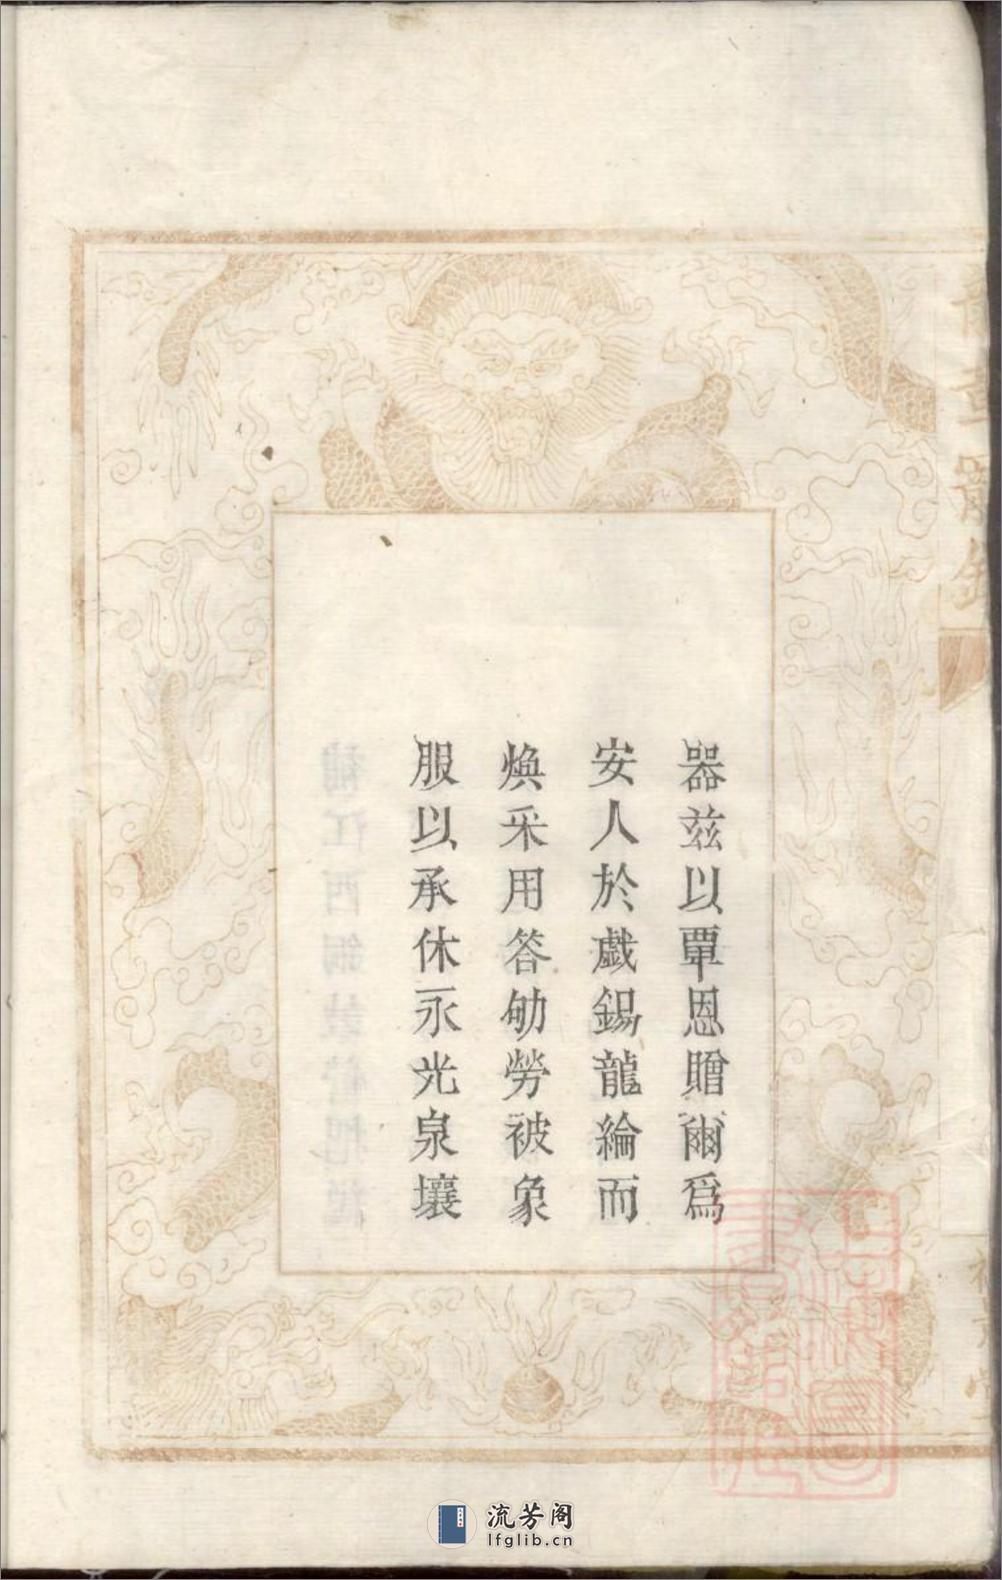 器茲以覃恩贈爾爲
安人於戲錫龍綸而
煥采用答劬勞被象
服以承休永光泉壤
流芳阁
lfglib.cn